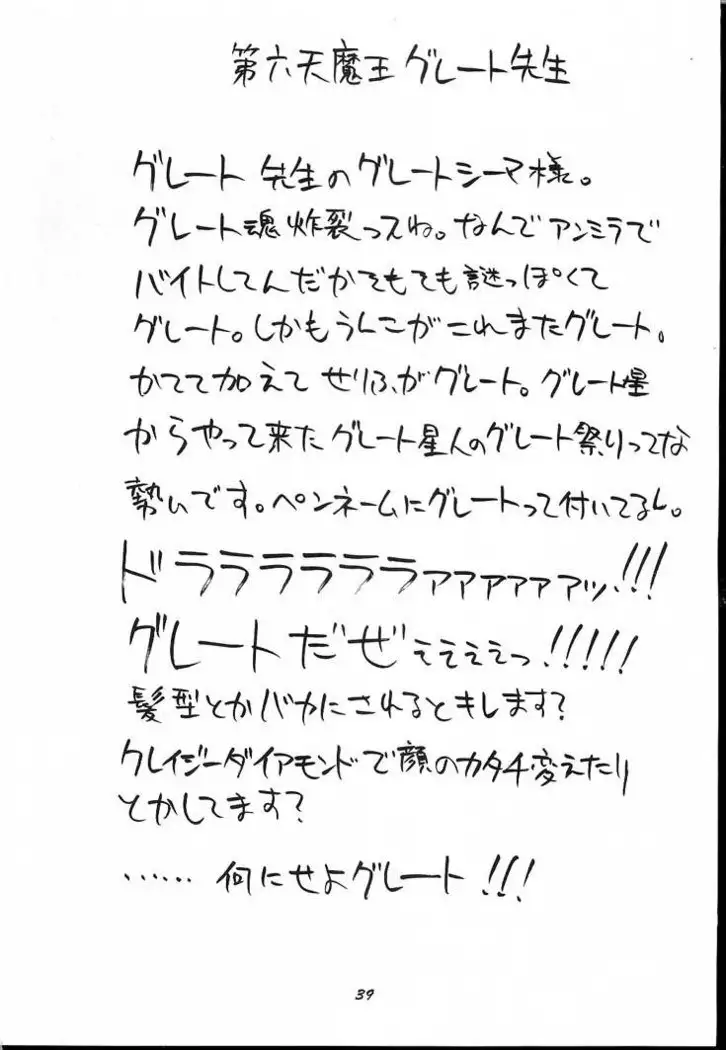 第六天魔王グレート先生
グレート先生のグレートシーマ様。
グレート魂炸裂ってね。なんでアンミラで
バイトしてんだかとてもとても謎っぽくて
グレート。しかもうんこがこれまたグレート。
かてて加えてせりふがグレート。グレート星
からやって来たグレート星人のグレート祭りってな
勢いです。ペンネームにグレートって付いてるし。
ドララララララァァァァァァッ!!!
グレートだぜぇぇぇぇっ!!!!!
髪型とかバカにされるとキレします?
クレイジーダイアモンドで顔のカタチ変えたり
とかしてます?
……何にせよグレート!!!
39